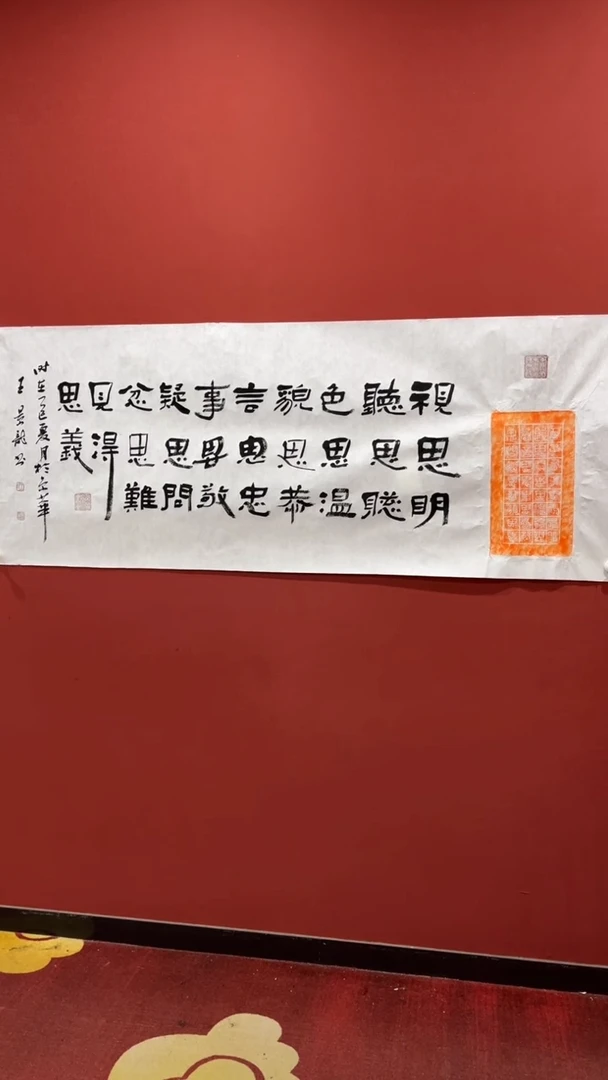 視思明
聽思聰
色思温
貌思恭
言思忠
事思敬
疑思問
忿思難
見得
思義
时在丁巳夏月於京華
王